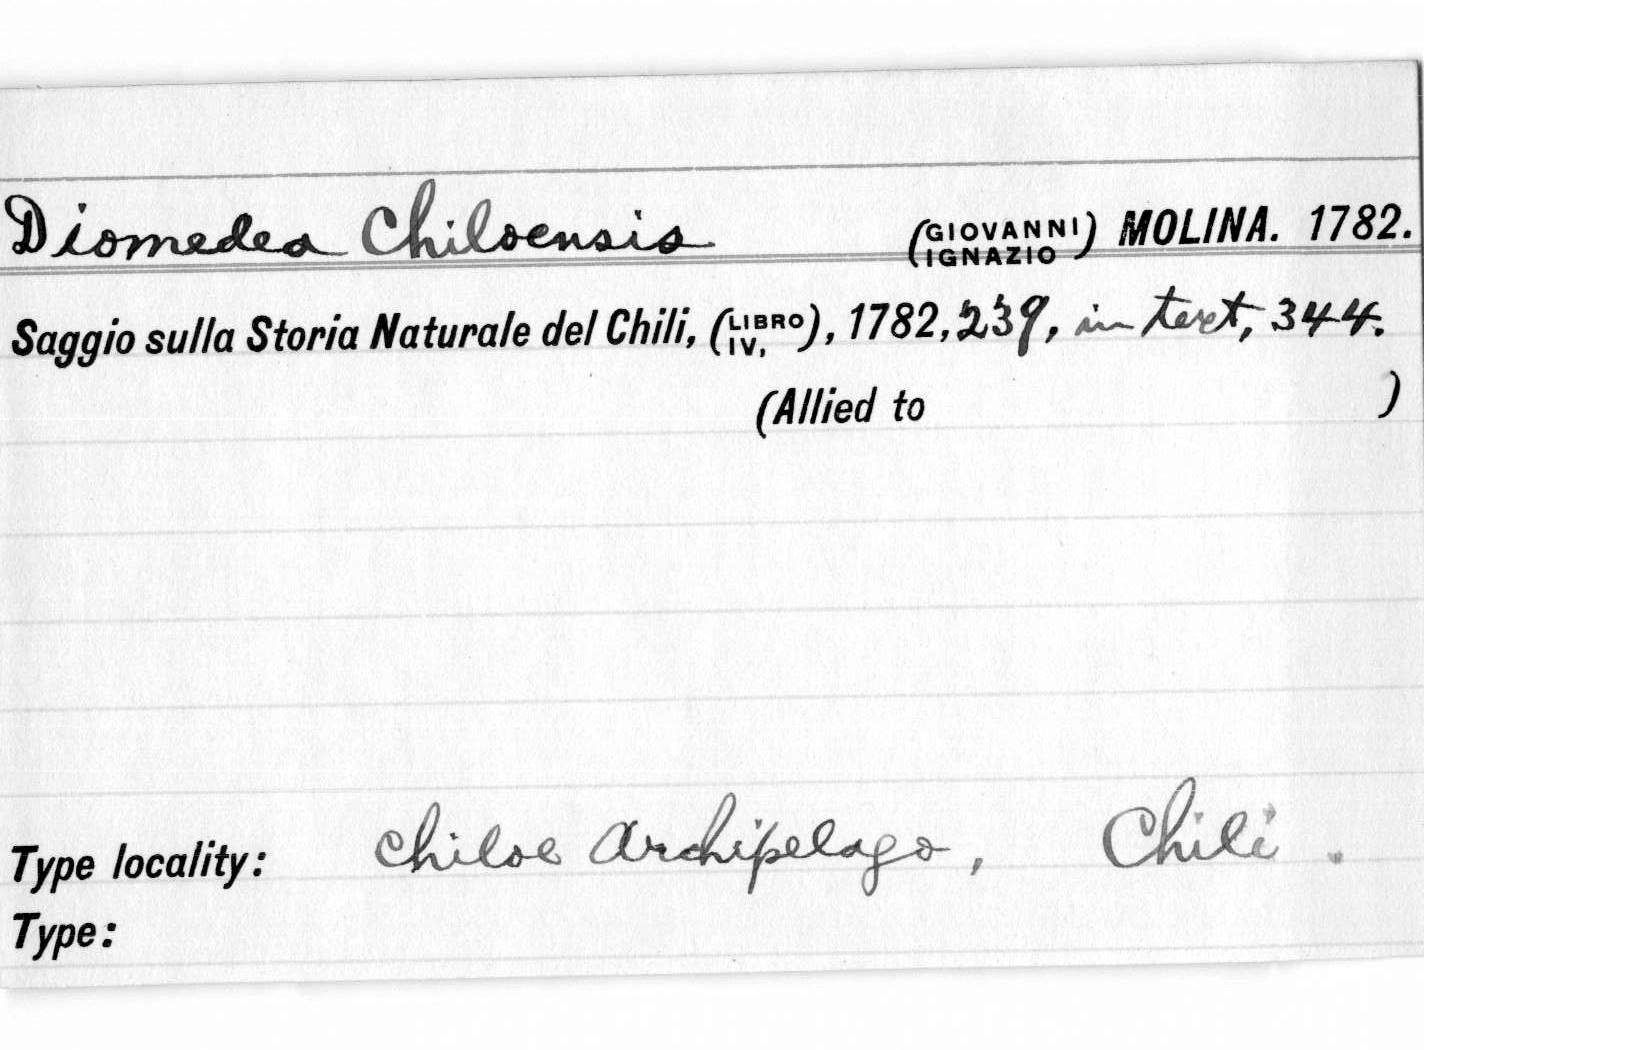 Diomedea Chiloensis (GIOVANNI IGNAZIO) MOLINA. 1782.
Saggio sulla Storia Naturale del Chili, (LIBRO IV,), 1782, 239, in text, 344.
(Allied to )
Type locality: Chiloe Archipelago, Chili.
Type: